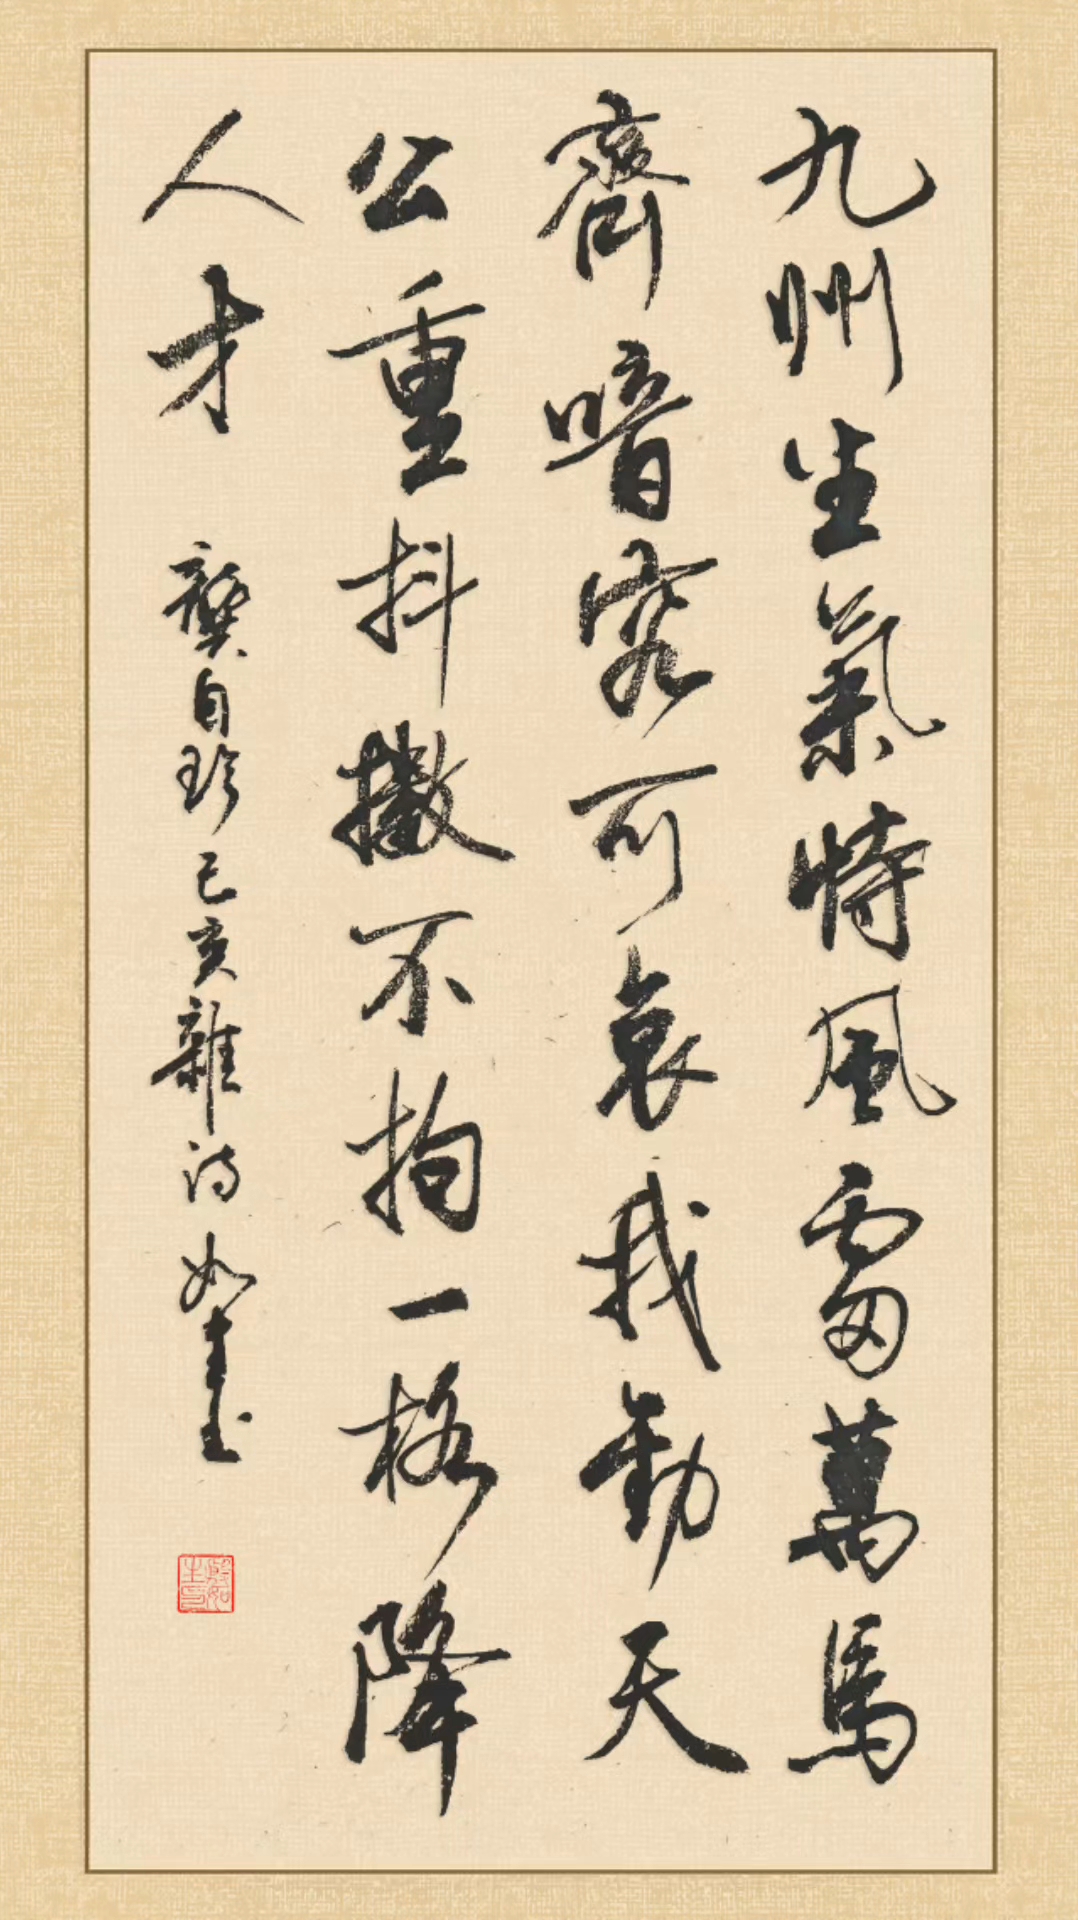 九州生氣恃風雷萬馬
齊喑究可哀我勸天
公重抖擻不拘一格降
人才
龔自珍己亥雜詩 如生
殷如生印